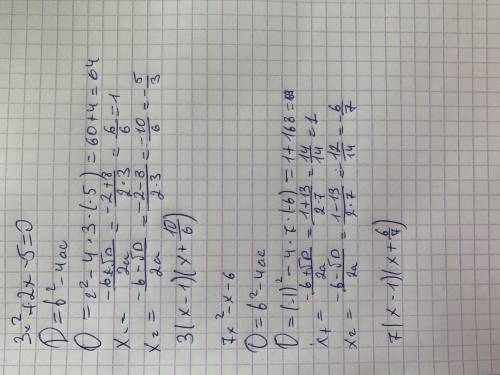 3x²+2x-5=0
D=b²-4ac
D=2²-4·3·(-5)=60+4=64
x₁=(-b+√D)/2a=(-2+8)/(2·3)=6/6=1
x₂=(-b-√D)/2a=(-2-8)/(2·3)=-10/6=-5/3
3(x-1)(x+10/6)
7x²-x-6
D=b²-4ac
D=(-1)²-4·7·(-6)=1+168=
x₁=(-b+√D)/2a=(1+13)/(2·7)=14/14=1
x₂=(-b-√D)/2a=(1-13)/(2·7)=-12/14=-6/7
7(x-1)(x+6/7)